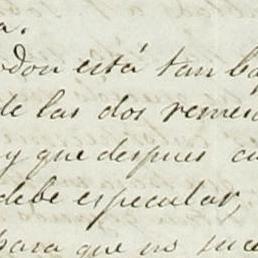 a.
odon está tan ba
de las dos remes
y que despues cu
debe especular,
para que no suce